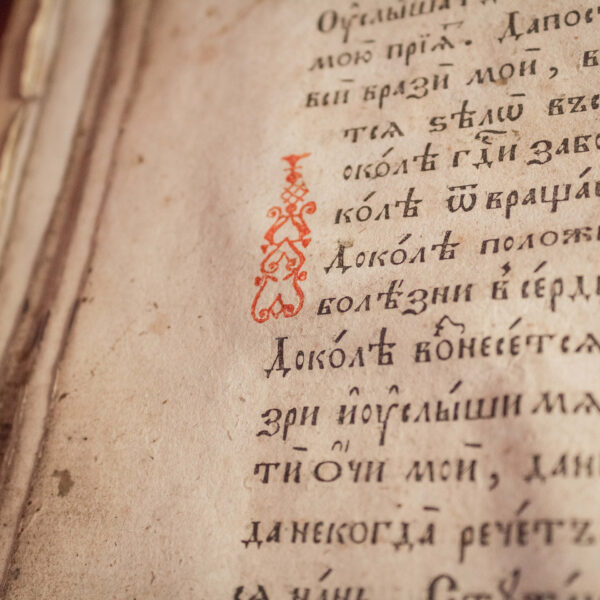 Оу҆слы́ша г
мою̀ прїѧ́т. Да пост
всѝ вразѝ моѝ, в
тсѧ ѕѣлѡ̀ въз
око́лѣ гдⷭ҇и забꙋ
ко́лѣ ѿвраща́
Доко́лѣ положꙋ
болѣ́зни в се́рдц
Доко́лѣ возне́сетсѧ
зри и҆оу҆слы́ши мѧ
тѝ Ѻ҆́чи моѝ, да н
да некогда̀ рече́тъ